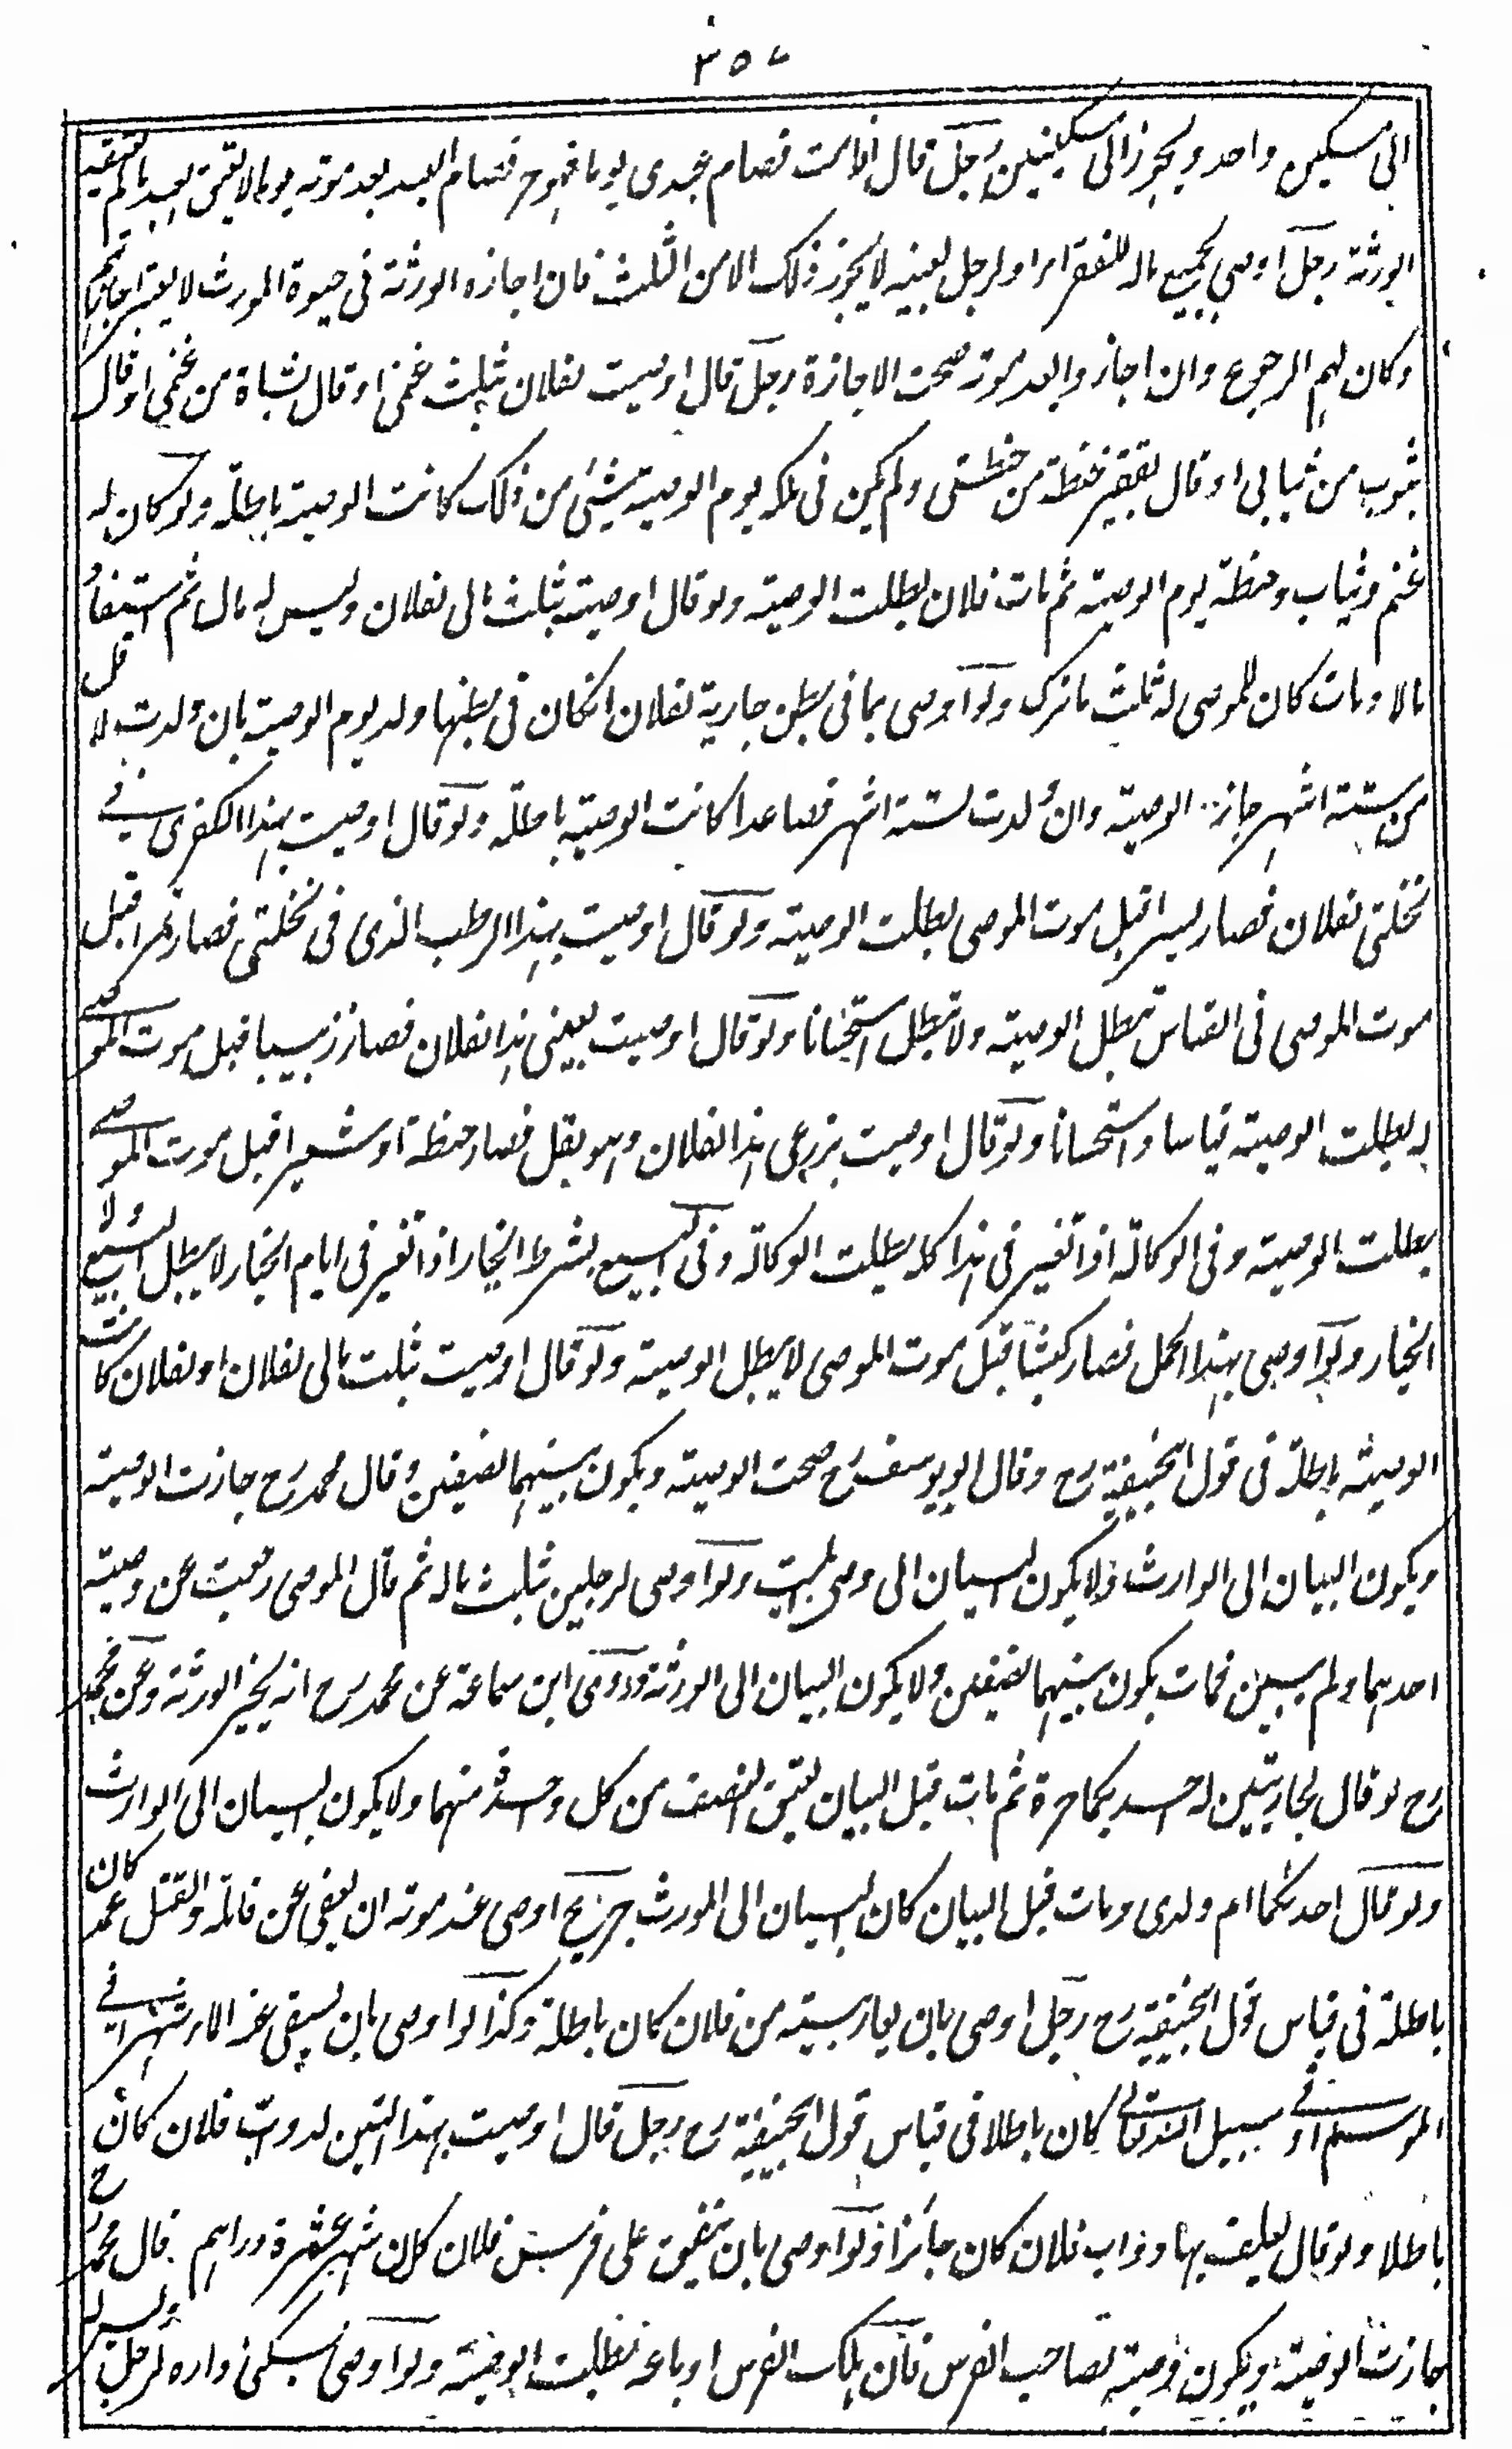 ٣٥٧
الى مسكين واحد ويجوز الى مسكينين رجل قال اذا مت فصام عبدى يوما فهو حر فصام العبد بعد موته يوما لا يعتق العبد ما لم يعتقه
الورثة رجل اوصى بجميع ماله للفقراء او لرجل بعينه لا يجوز ذلك الا من الثلث فان اجازه الورثة فى حيوة المورث لا يعتبر اجازتهم
وكان لهم الرجوع وان اجازوا بعد موته صحت الاجازة رجل قال اوصيت لفلان بثلث غنمى او قال بشاة من غنمى او قال
بثوب من ثيابى او قال بقفيز حنطة من حنطتى ولم يكن فى ملكه يوم الوصية شئ من ذلك كانت الوصية باطلة ولو كان له
غنم وثياب وحنطة يوم الوصية ثم مات فلان بطلت الوصية ولو قال اوصيت بثلث مالى لفلان وليس له مال ثم استفاد
مالا ومات كان للموصى له ثلث ما ترك ولو اوصى بما فى بطن جارية لفلان انكان فى بطنها ولد يوم الوصية بان ولدت لاقل
من ستة اشهر جاز الوصية وان ولدت لستة اشهر فصاعدا كانت الوصية باطلة ولو قال اوصيت بهذا الكفرى فى
نخلتى لفلان فصار بسرا قبل موت الموصى بطلت الوصية ولو قال اوصيت بهذا الرطب الذى فى نخلتى فصار تمرا قبل
موت الموصى فى القياس تبطل الوصية ولا تبطل استحسانا ولو قال اوصيت بعنبى هذا لفلان فصار زبيبا قبل موت الموصى
له بطلت الوصية قياسا واستحسانا ولو قال اوصيت بزرعى هذا لفلان وهو بقل فصار حنطة او شعيرا قبل موت الموصى
بطلت الوصية وفى الوكالة اذا تغير فى هذا كله بطلت الوكالة وفى البيع بشرط الخيار اذا تغير فى ايام الخيار لا يبطل البيع ولا
الخيار ولو اوصى بهذا الحمل فصار كبشا قبل موت الموصى لا يبطل الوصية ولو قال اوصيت بثلث مالى لفلان او لفلان كانت
الوصية باطلة فى قول ابيحنيفة رح وقال ابو يوسف رح صحت الوصية ويكون بينهما نصفين وقال محمد رح جازت الوصية
ويكون البيان الى الوارث ولا يكون البيان الى وصى الميت ولو اوصى لرجلين بثلث ماله ثم قال الموصى رجعت عن وصية
احدهما ولم يبين فمات يكون بينهما نصفين ولا يكون البيان الى الورثة وروى ابن سماعة عن محمد رح انه يخير الورثة وعن محمد
رح لو قال لجاريتين له احديكما حرة ثم مات قبل البيان يعتق النصف من كل واحدة منهما ولا يكون البيان الى الوارث
ولو قال احديكما ام ولدى ومات قبل البيان كان البيان الى المورث جريح اوصى عند موته ان يعفى عن قاتله والقتل عمد كان
باطلة فى قياس قول ابيحنيفة رح رجل اوصى بان يعار بيته من فلان كان باطلة وكذا لو اوصى بان يسقى عنه الماء شهرا فى
الموسم او فى سبيل الله تعالى كان باطلا فى قياس قول ابيحنيفة رح رجل قال اوصيت بهذا التبن لدواب فلان كان
باطلا ولو قال يعلف بها دواب فلان كان جائزا ولو اوصى بان ينفق على فرس فلان كل شهر عشرة دراهم قال محمد رح
جازت الوصية ويكون وصية لصاحب الفرس فان هلك الفرس او باعه بطلت الوصية ولو اوصى بسكنى داره لرجل وليس له